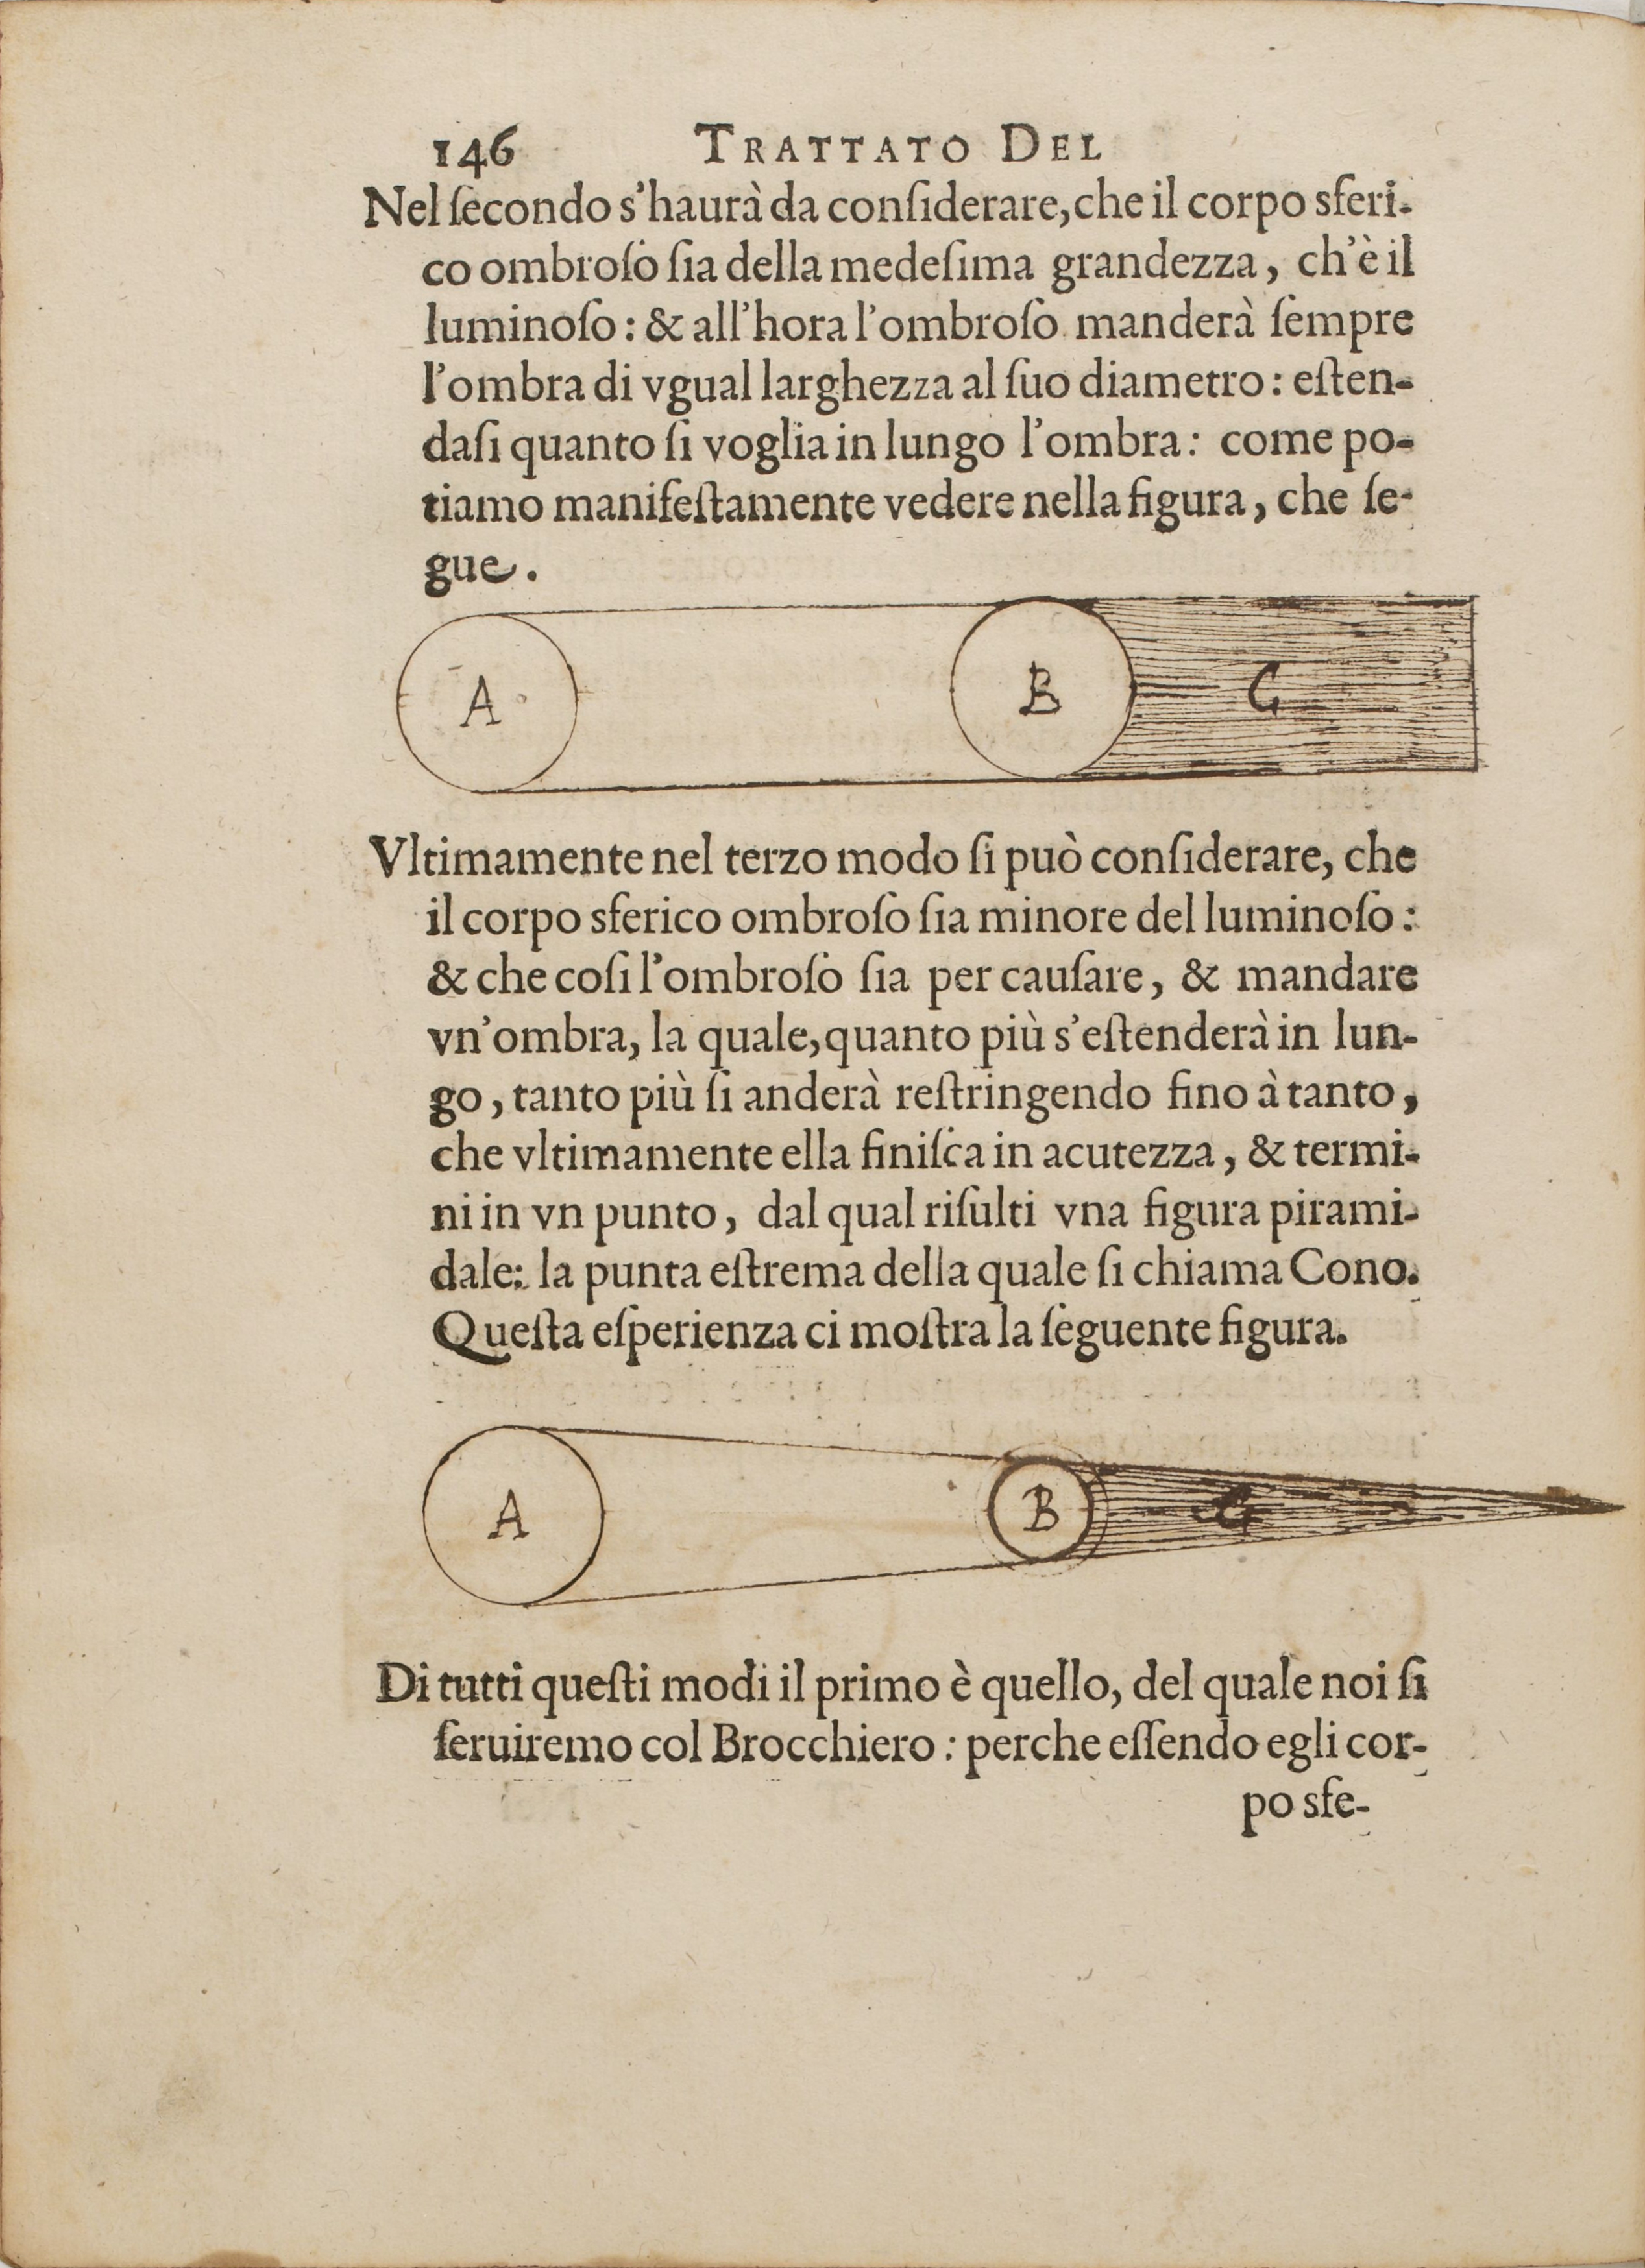 146 TRATTATO DEL
Nel ſecondo s'haurà da conſiderare, che il corpo sferi-
co ombroſo ſia della medeſima grandezza, ch'è il
luminoſo: & all'hora l'ombroſo manderà ſempre
l'ombra di vgual larghezza al ſuo diametro: eſten-
daſi quanto ſi voglia in lungo l'ombra: come po-
tiamo manifeſtamente vedere nella figura, che ſe-
gue.
A B C
Vltimamente nel terzo modo ſi può conſiderare, che
il corpo sferico ombroſo ſia minore del luminoſo:
& che coſi l'ombroſo ſia per cauſare, & mandare
vn'ombra, la quale, quanto più s'eſtenderà in lun-
go, tanto più ſi anderà reſtringendo fino à tanto,
che vltimamente ella finiſca in acutezza, & termi-
ni in vn punto, dal qual riſulti vna figura pirami-
dale: la punta eſtrema della quale ſi chiama Cono.
Queſta eſperienza ci moſtra la ſeguente figura.
A B C
Di tutti queſti modi il primo è quello, del quale noi ſi
ſeruiremo col Brocchiero: perche eſſendo egli cor-
po sfe-